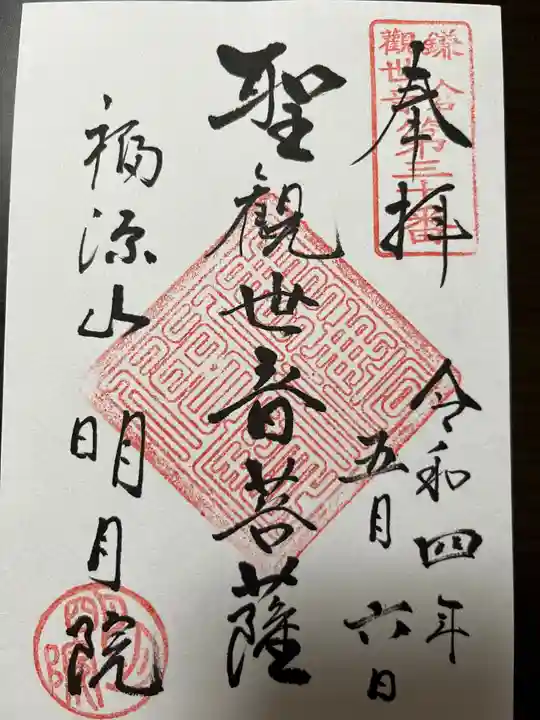 奉拝
鎌倉
觀世音第三十番
令和四年
五月六日
聖観世音菩薩
福源山明月院
明月院